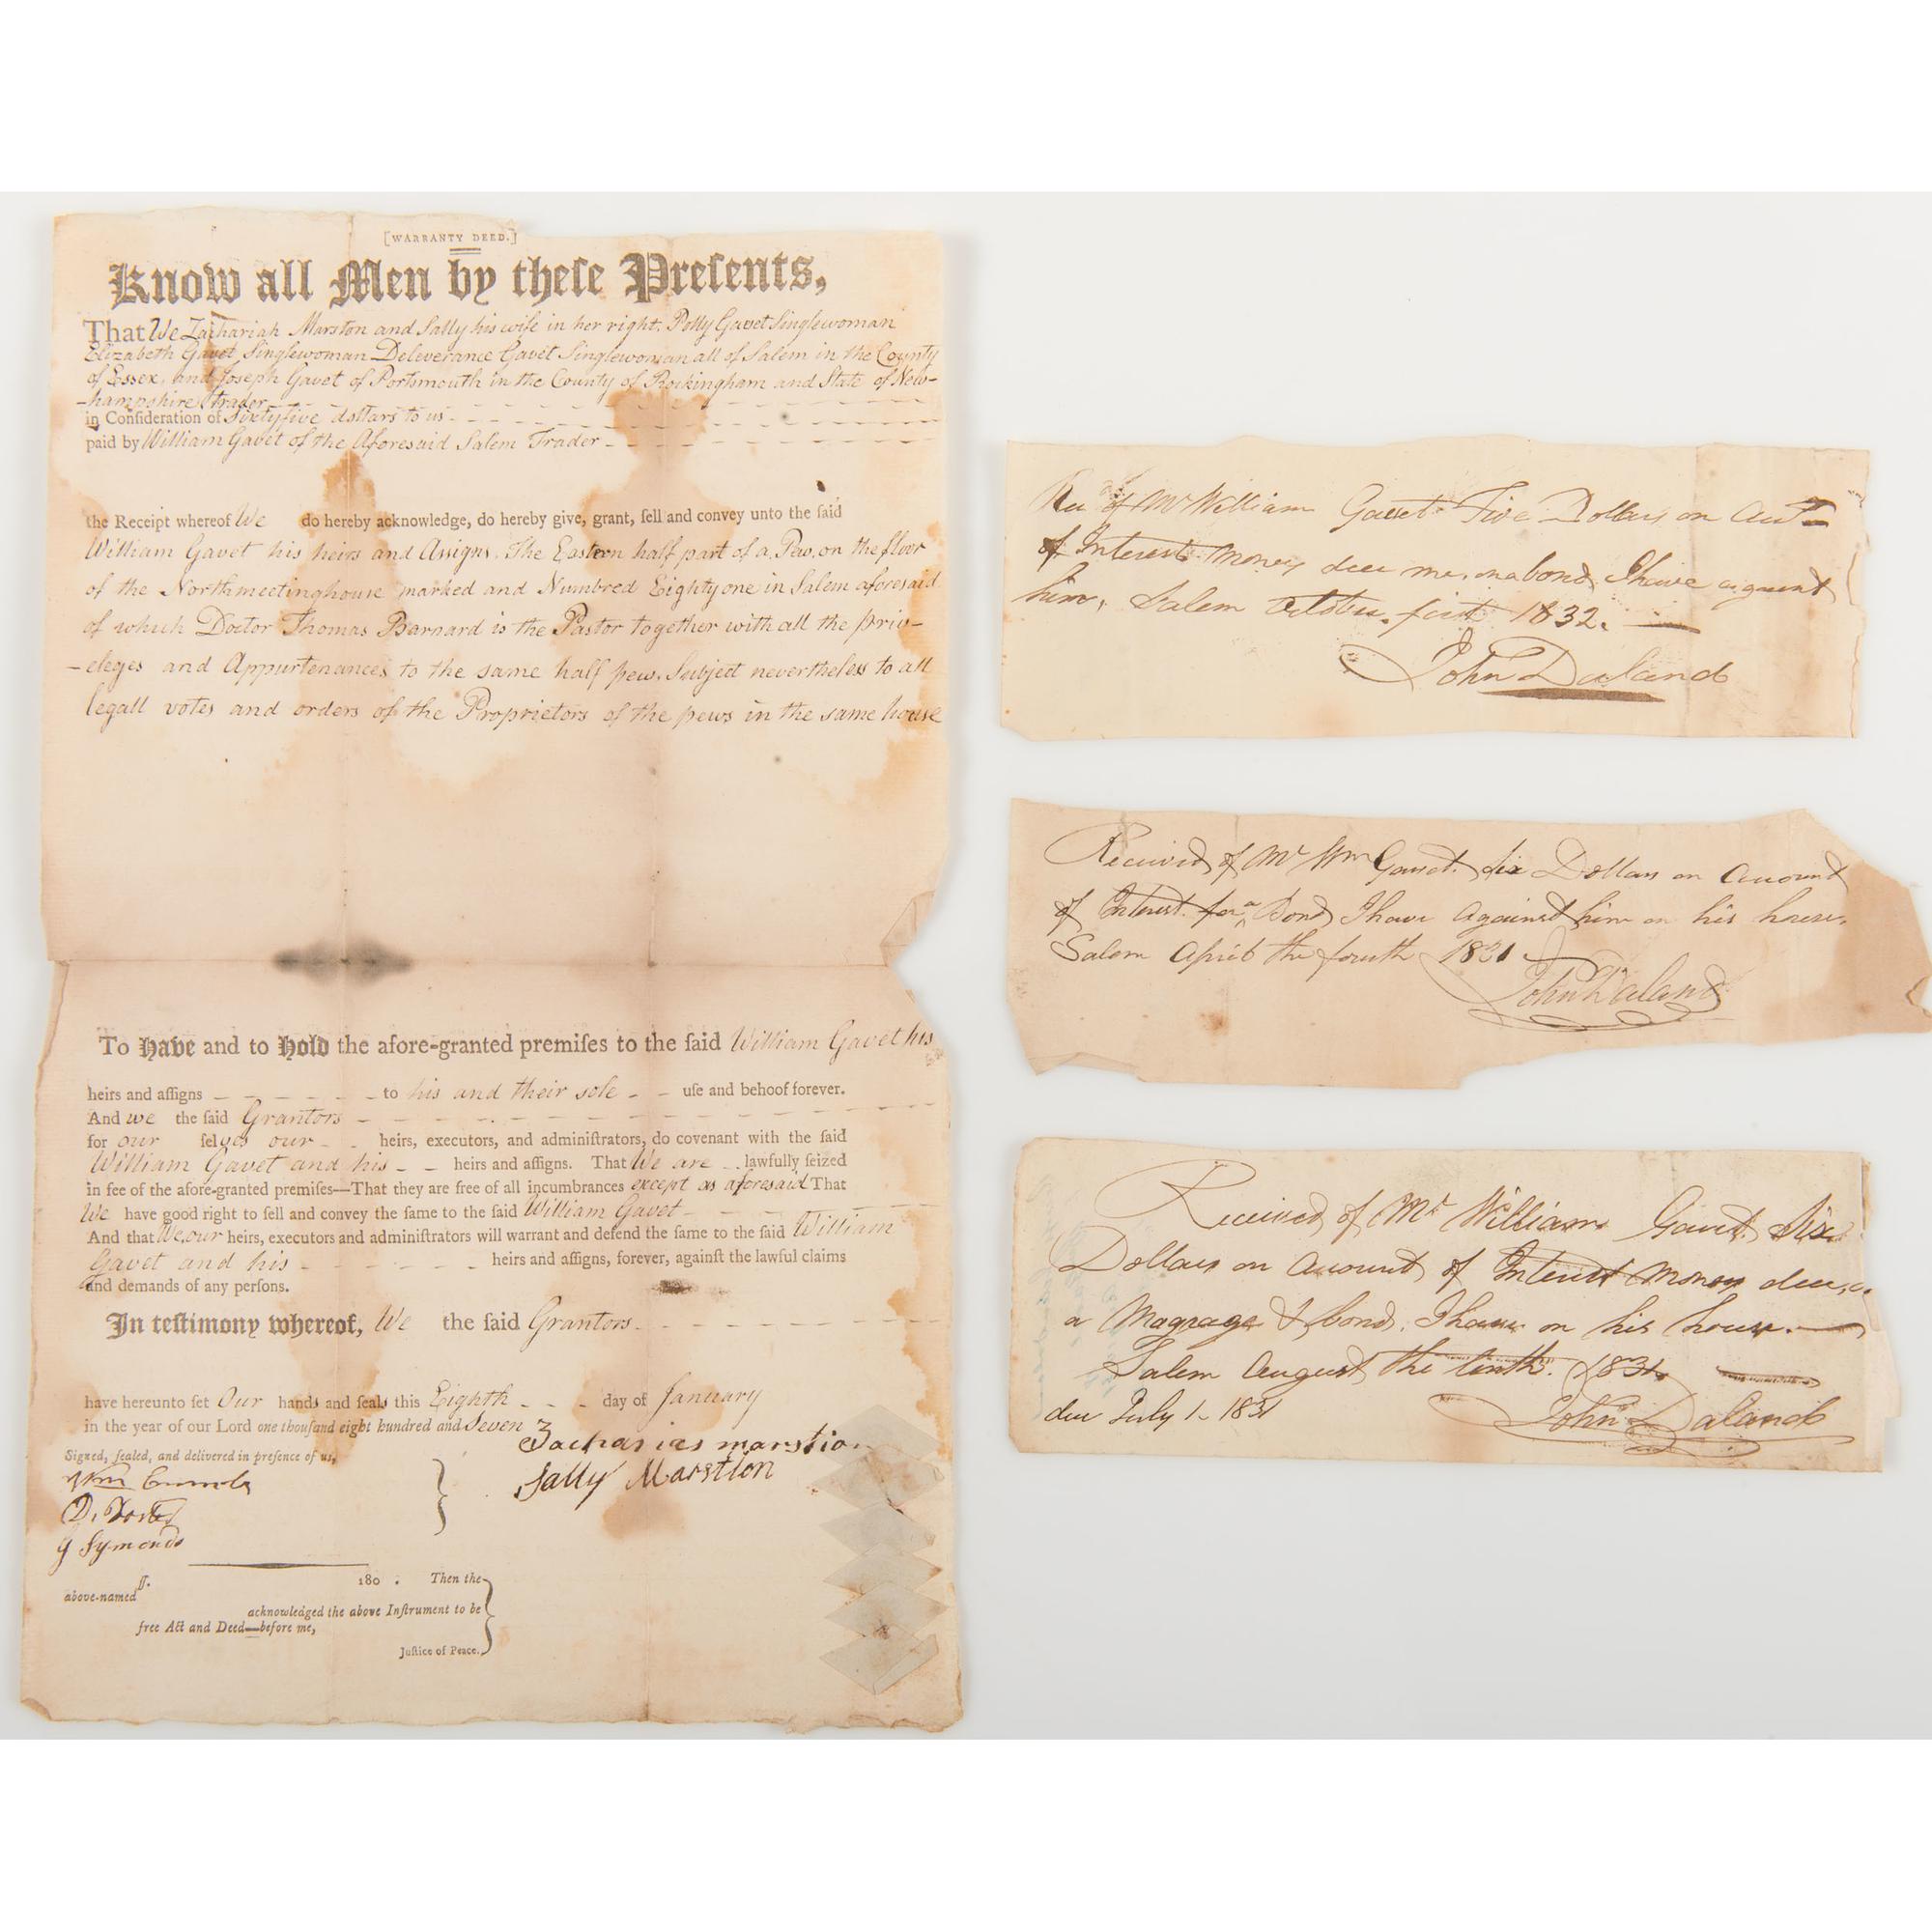 [WARRANTY DEED.]
Know all Men by theſe Preſents,
That We Zachariah Marston and Sally his wife in her right, Polly Gavet Singlewoman
Elizabeth Gavet, Singlewoman Deleverance Gavet Singlewoman all of Salem in the County
of Essex, and Joseph Gavet of Portsmouth in the County of Rockingham and State of New-
-hampshire trader
in Conſideration of Sixtyfive dollars to us
paid by William Gavet of the Aforesaid Salem Trader
the Receipt whereof We do hereby acknowledge, do hereby give, grant, ſell and convey unto the ſaid
William Gavet his heirs and Assigns. The Eastern half part of a Pew, on the floor
of the Northmeetinghouse marked and Numbred Eightyone in Salem aforesaid
of which Doctor Thomas Barnard is the Pastor together with all the priv-
-eleges and Appurtenances to the same half pew. Subject nevertheless to all
legall votes and orders of the Proprietors of the pews in the same house
To have and to hold the afore-granted premiſes to the ſaid William Gavet his
heirs and aſſigns - - - - - to his and their sole - - uſe and behoof forever.
And we the ſaid Grantors
for our ſelves our - - heirs, executors, and adminiſtrators, do covenant with the ſaid
William Gavet and his - - heirs and aſſigns. That We are - - lawfully ſeized
in fee of the afore-granted premiſes—That they are free of all incumbrances except as aforesaid That
We have good right to ſell and convey the ſame to the ſaid William Gavet
And that We, our heirs, executors and adminiſtrators will warrant and defend the ſame to the ſaid William
Gavet and his - - - - - - heirs and aſſigns, forever, againſt the lawful claims
and demands of any perſons.
In teſtimony whereof, We the ſaid Grantors
have hereunto ſet Our hands and ſeals this Eighth - - - day of January
in the year of our Lord one thouſand eight hundred and Seven
Signed, ſealed, and delivered in preſence of us,
Zacharias marstion
Sally Marstion
Wm
D. Foster
G Symonds
ſſ. 180 . Then the
above-named
acknowledged the above Inſtrument to be
free Act and Deed—before me,
Juſtice of Peace.
Recd of Mr William Gavet Five Dollars on Acct
of Interest Money due me, on a bond, I have against
him, Salem October first 1832.
John Daland
Received of Mr Wm Gavet. Six Dollars on Account
of Interest for a Bond I have against him on his house.
Salem April the fourth 1831
John Daland
Received of Mr William Gavet. Six
Dollars on Account of Interest Money due,
a Magrage & bond. I have on his house.
Salem August the tenth. 1831.
due July 1. 1831
John Daland